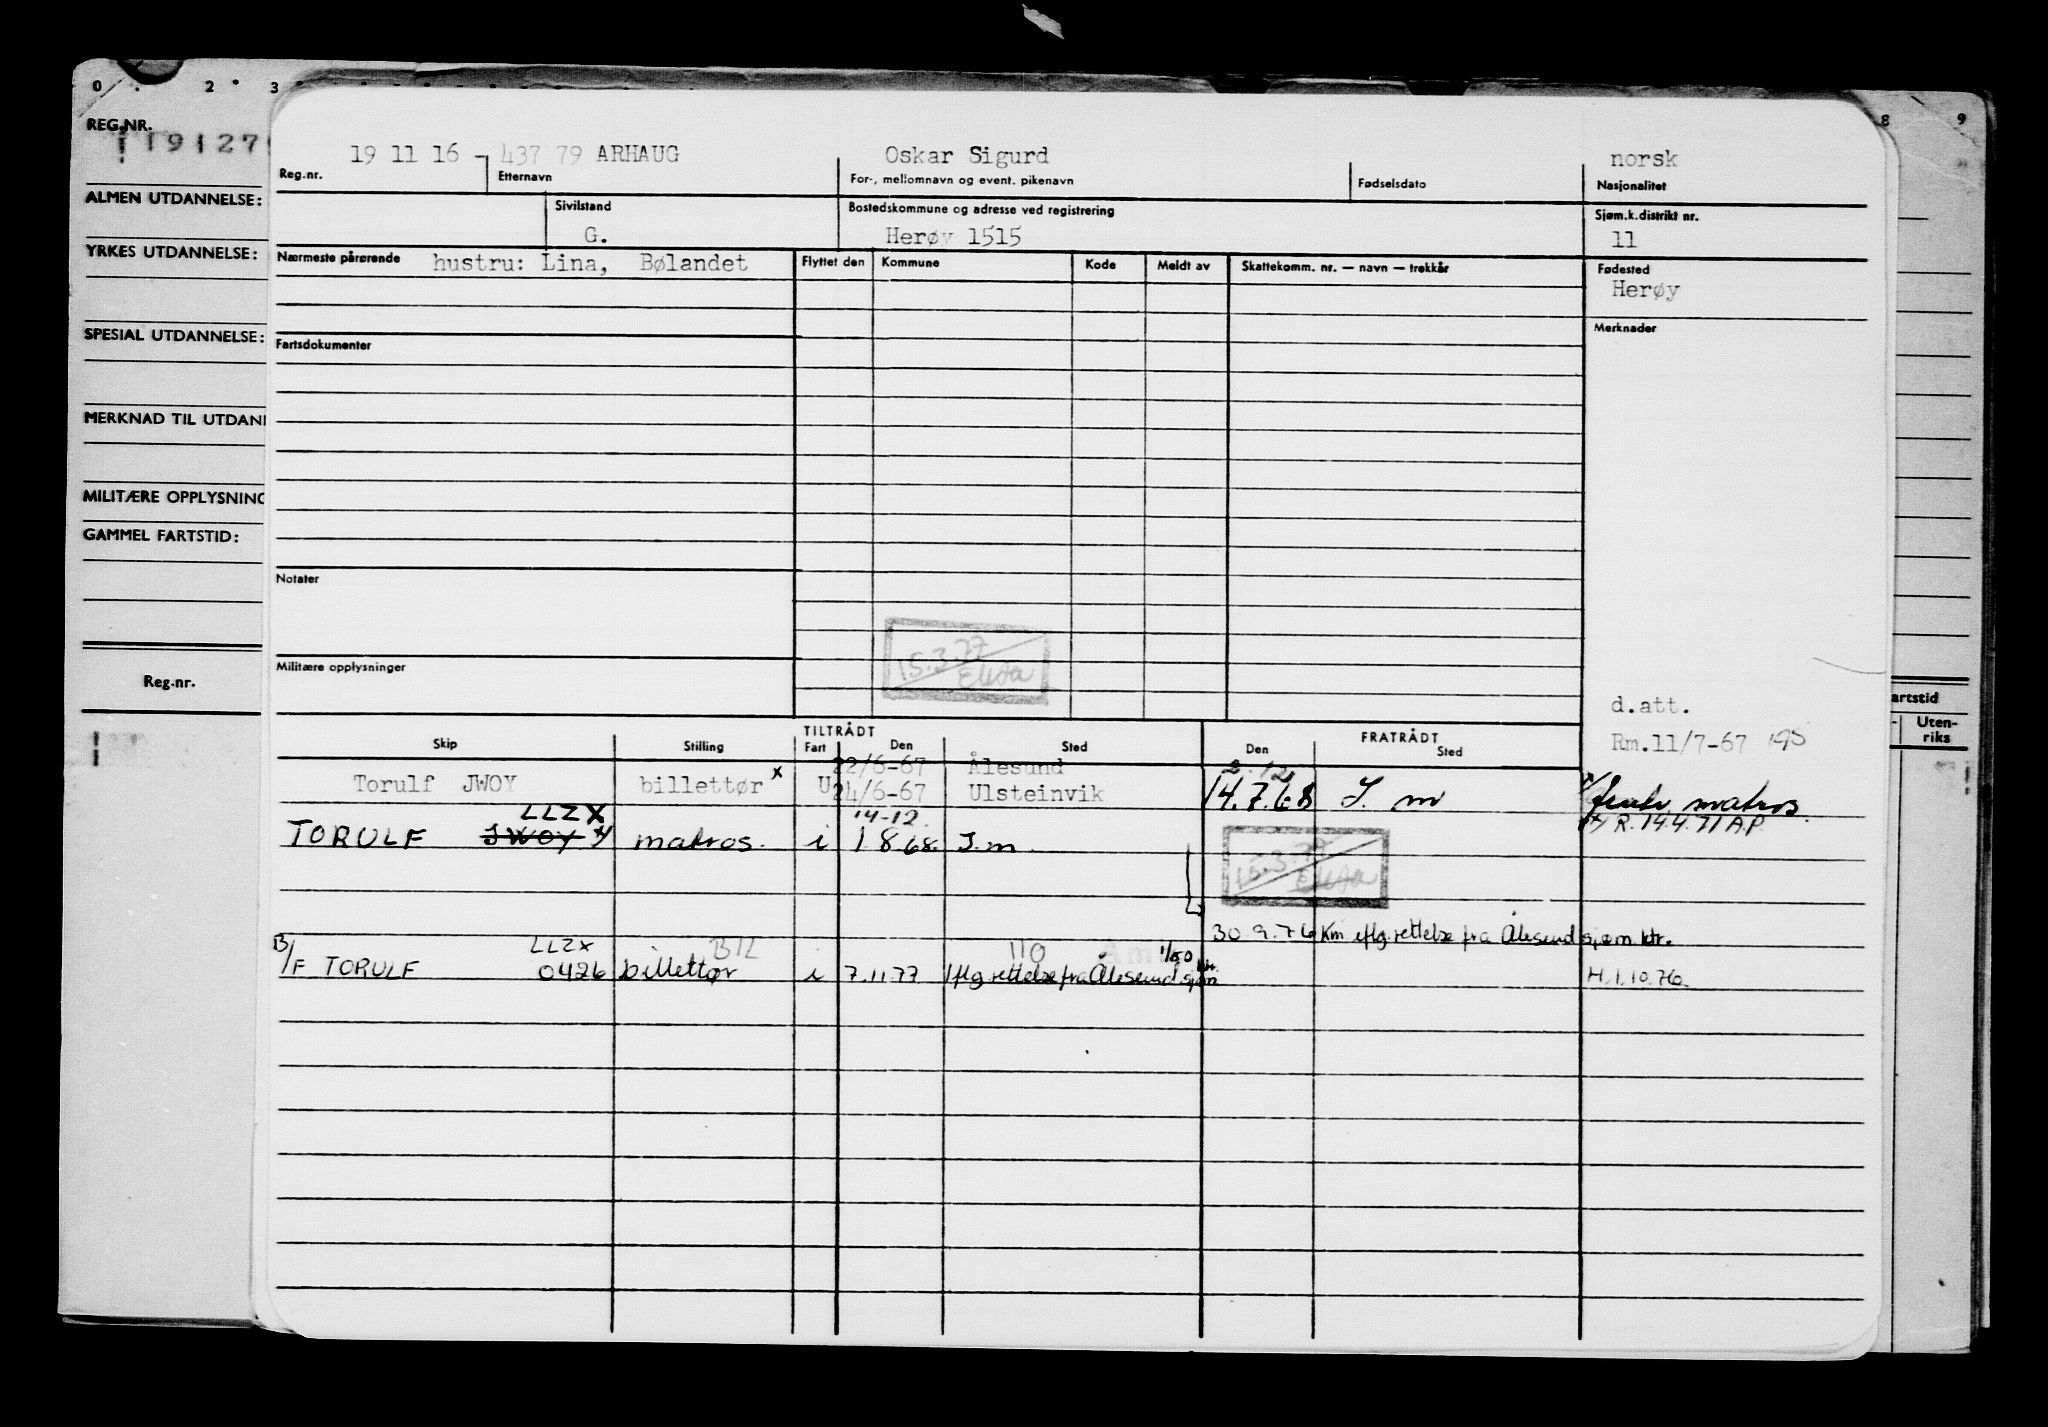 0 . 2 . 3
8 9
REG.NR.
19127
ALMEN UTDANNELSE:
YRKES UTDANNELSE:
SPESIAL UTDANNELSE:
MERKNAD TIL UTDANN
MILITÆRE OPPLYSNING
GAMMEL FARTSTID:
Reg.nr.
artstid
Uten-
riks
19 11 16 - 437 79 ARHAUG Oskar Sigurd norsk
Reg.nr. Etternavn For-, mellomnavn og event. pikenavn Fødselsdato Nasjonalitet
Sivilstand Bostedskommune og adresse ved registrering Sjøm.k.distrikt nr.
G. Herøy 1515 11
Nærmeste pårørende hustru: Lina, Bølandet Flyttet den Kommune Kode Meldt av Skattekomm. nr. — navn — trekkår Fødested
Herøy
Merknader
Fartsdokumenter
Notater
15.3.77
Elisa
Militære opplysninger
d.att.
Rm.11/7-67
TILTRÅDT FRATRÅDT
Skip Stilling Fart Den Sted Den Sted
22/6-67 Ålesund 2.12
Torulf JWOY billettør x U 24/6-67 Ulsteinvik 14.7.68 S. m matros.
LLZX 14-12. R.14.4.71 A.P.
TORULF JWOY matros. i 1 8.68. S.m.
15.3.77
Elisa
30 9.76 Km iflg. rettelse fra Ålesund sjøm.ktr.
LLZX BIL 110
B/F TORULF 0426 billettør i 7.11.77 Iflg rettelse fra Ålesund sjøm ktr. H.1.10.76.